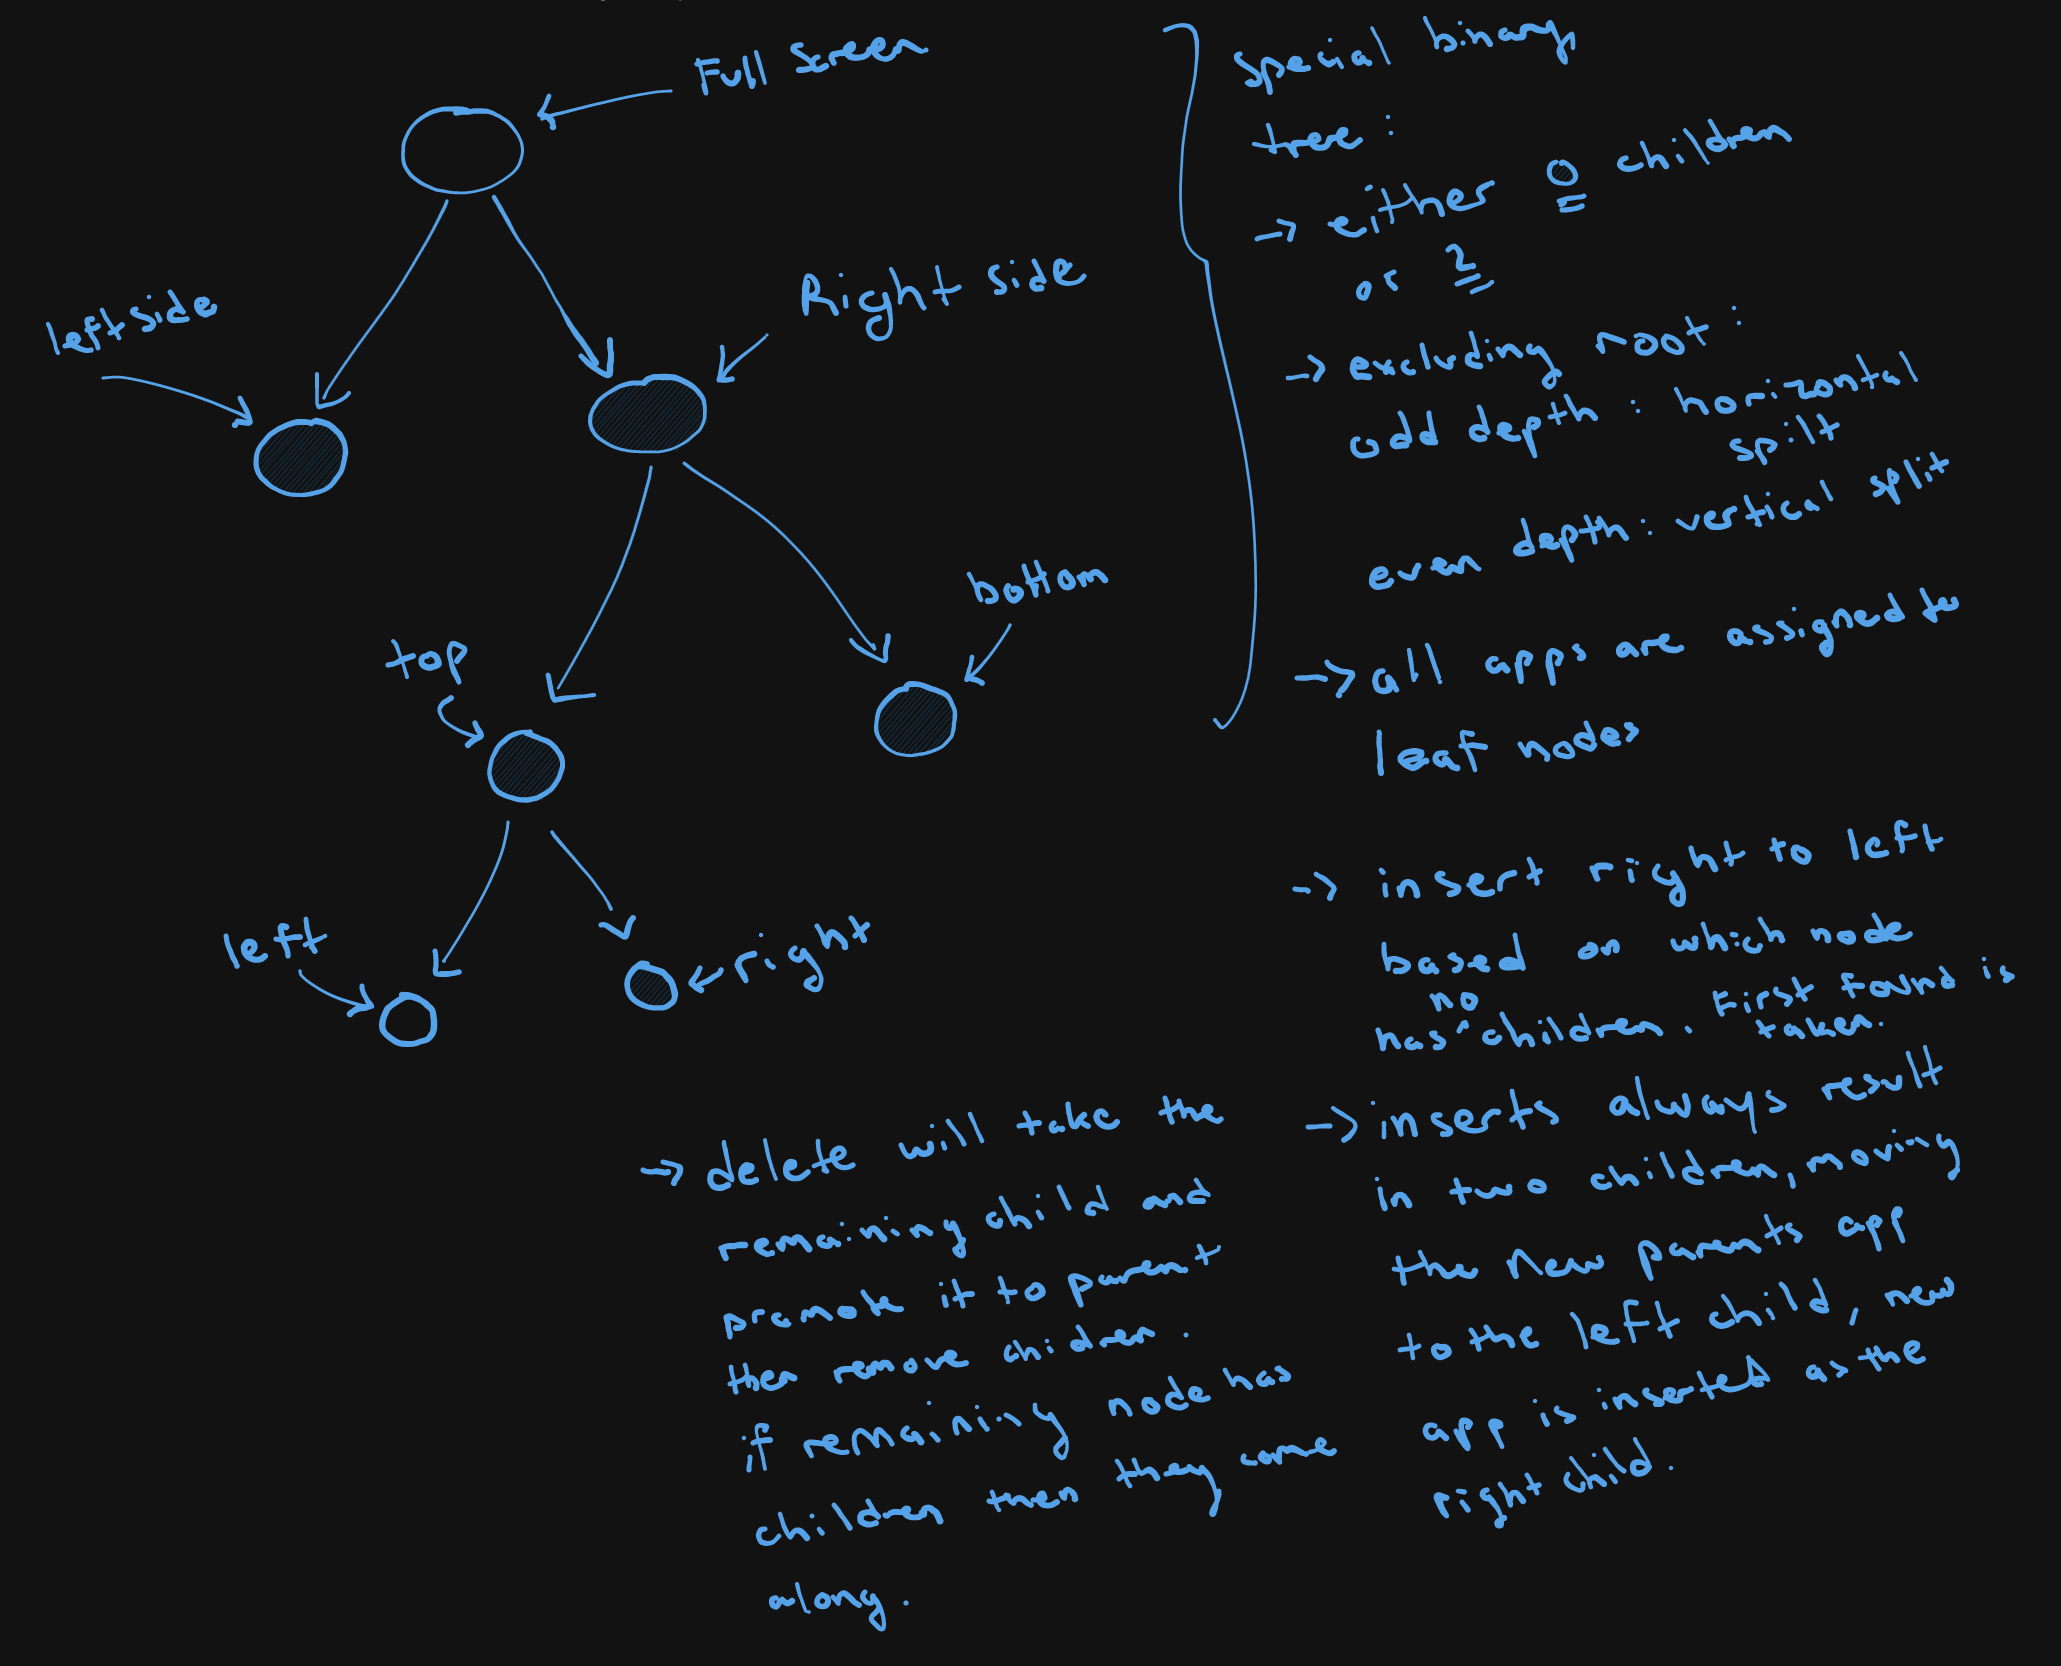 Full screen
left side
Right side
top
bottom
left
right
special binary
tree :
→ either 0 children
or 2
→ excluding root :
odd depth : horizontal
spilt
even depth : vertical split
→ all apps are assigned to
leaf nodes
→ insert right to left
based on which node
has no children. First found is
taken.
→ inserts always result
in two children, moving
the new parents app
to the left child, new
app is inserted as the
right child.
→ delete will take the
remaining child and
promote it to parent
then remove children.
if remaining node has
children then they come
along.